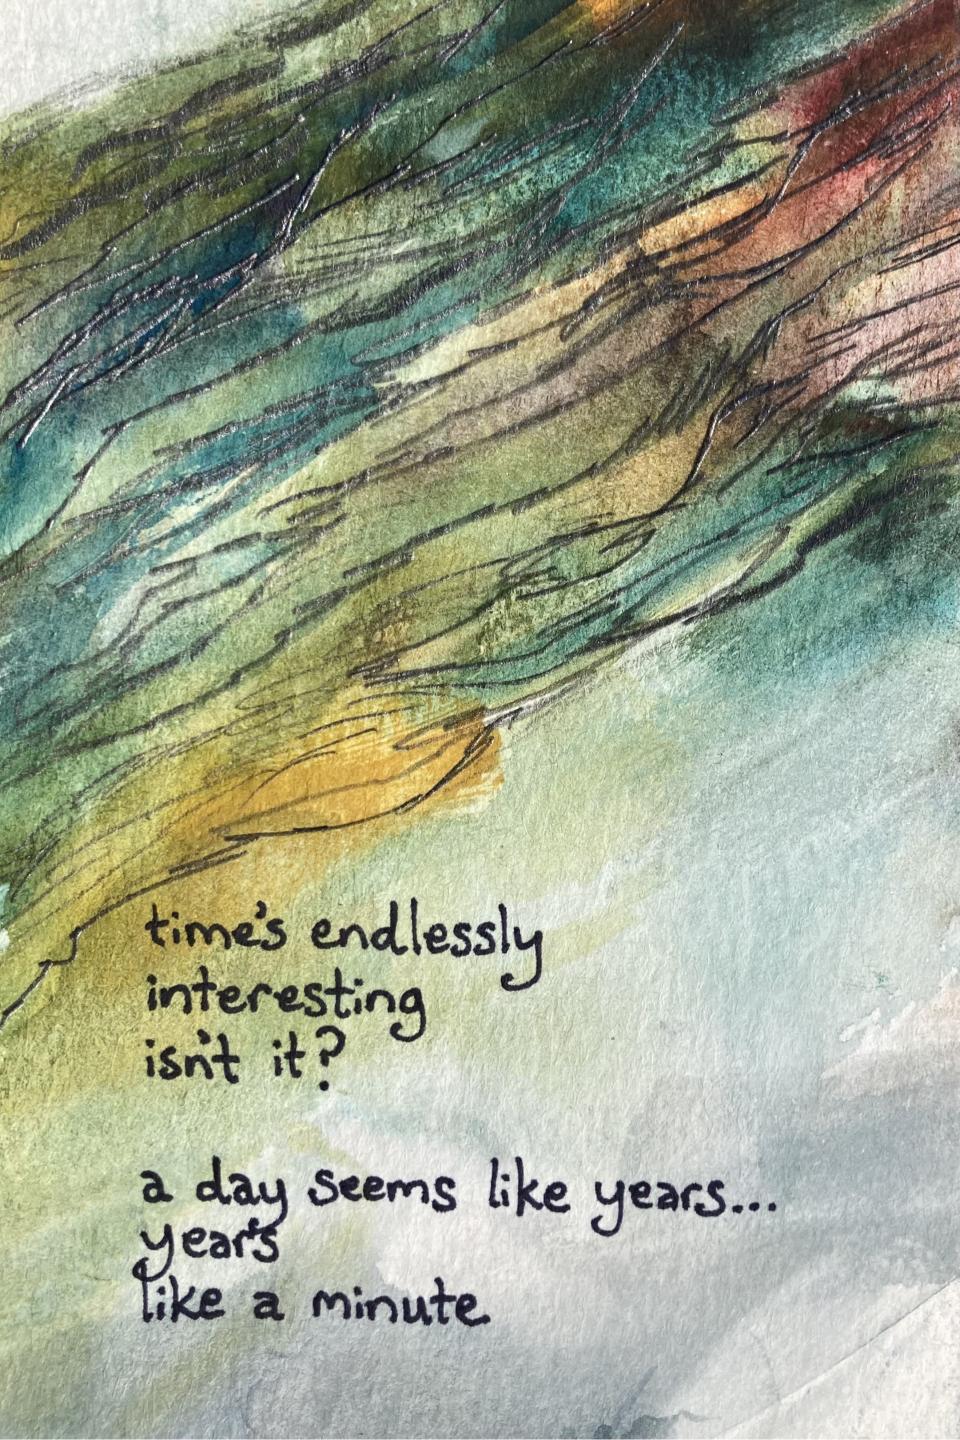 time's endlessly
interesting
isn't it?
a day seems like years...
year's
like a minute.